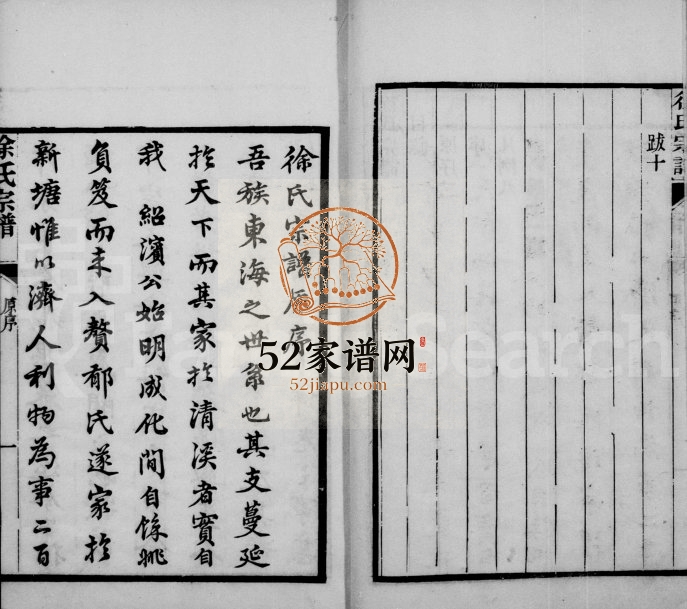 徐氏宗譜
跋十
徐氏宗譜原序
吾族東海之世系也其支蔓延
於天下而其家於清溪者實自
我 紹濱公始明成化間自餘姚
負笈而來入贅郁氏遂家於
新塘惟以濟人利物為事二百
徐氏宗譜
原序
一
52家谱网
52jiapu.com
Search